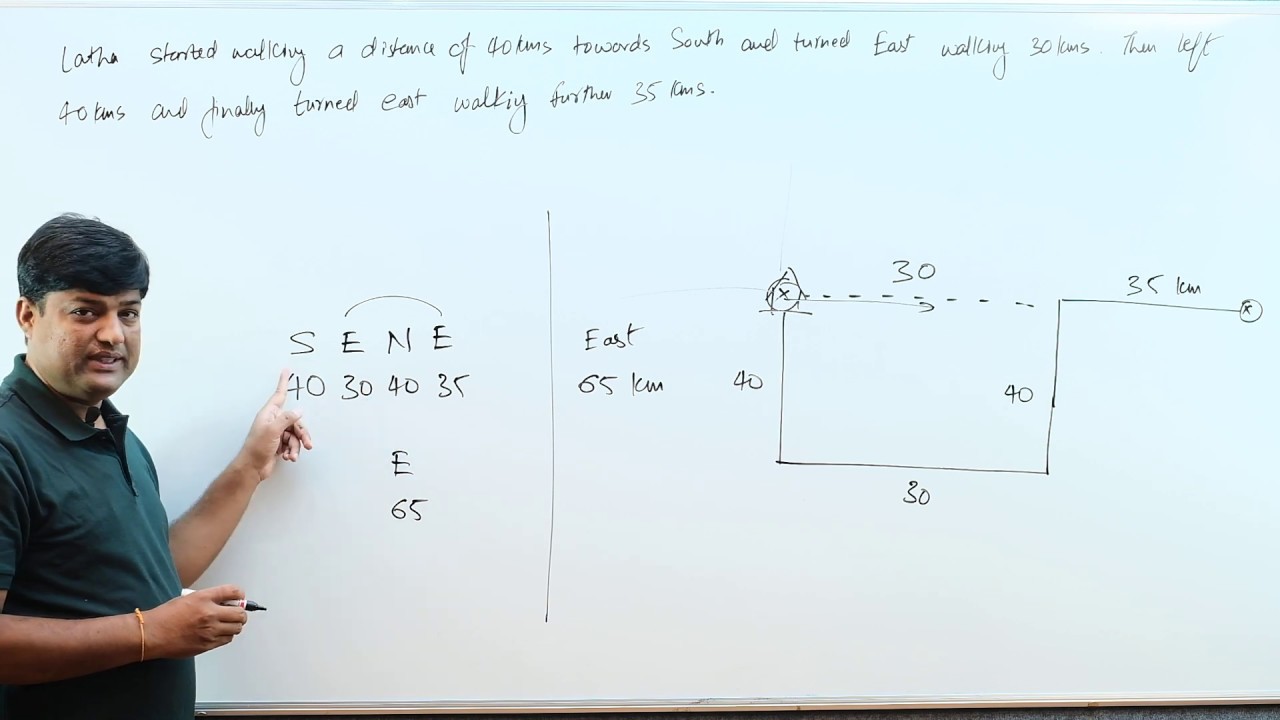 Latha started walking a distance of 40 kms towards South and turned East walking 30 kms. Then left
40 kms and finally turned east walkiy further 35 kms.
S E N E
40 30 40 35
E
65
East
65 km
30
35 km
x
x
40
40
30